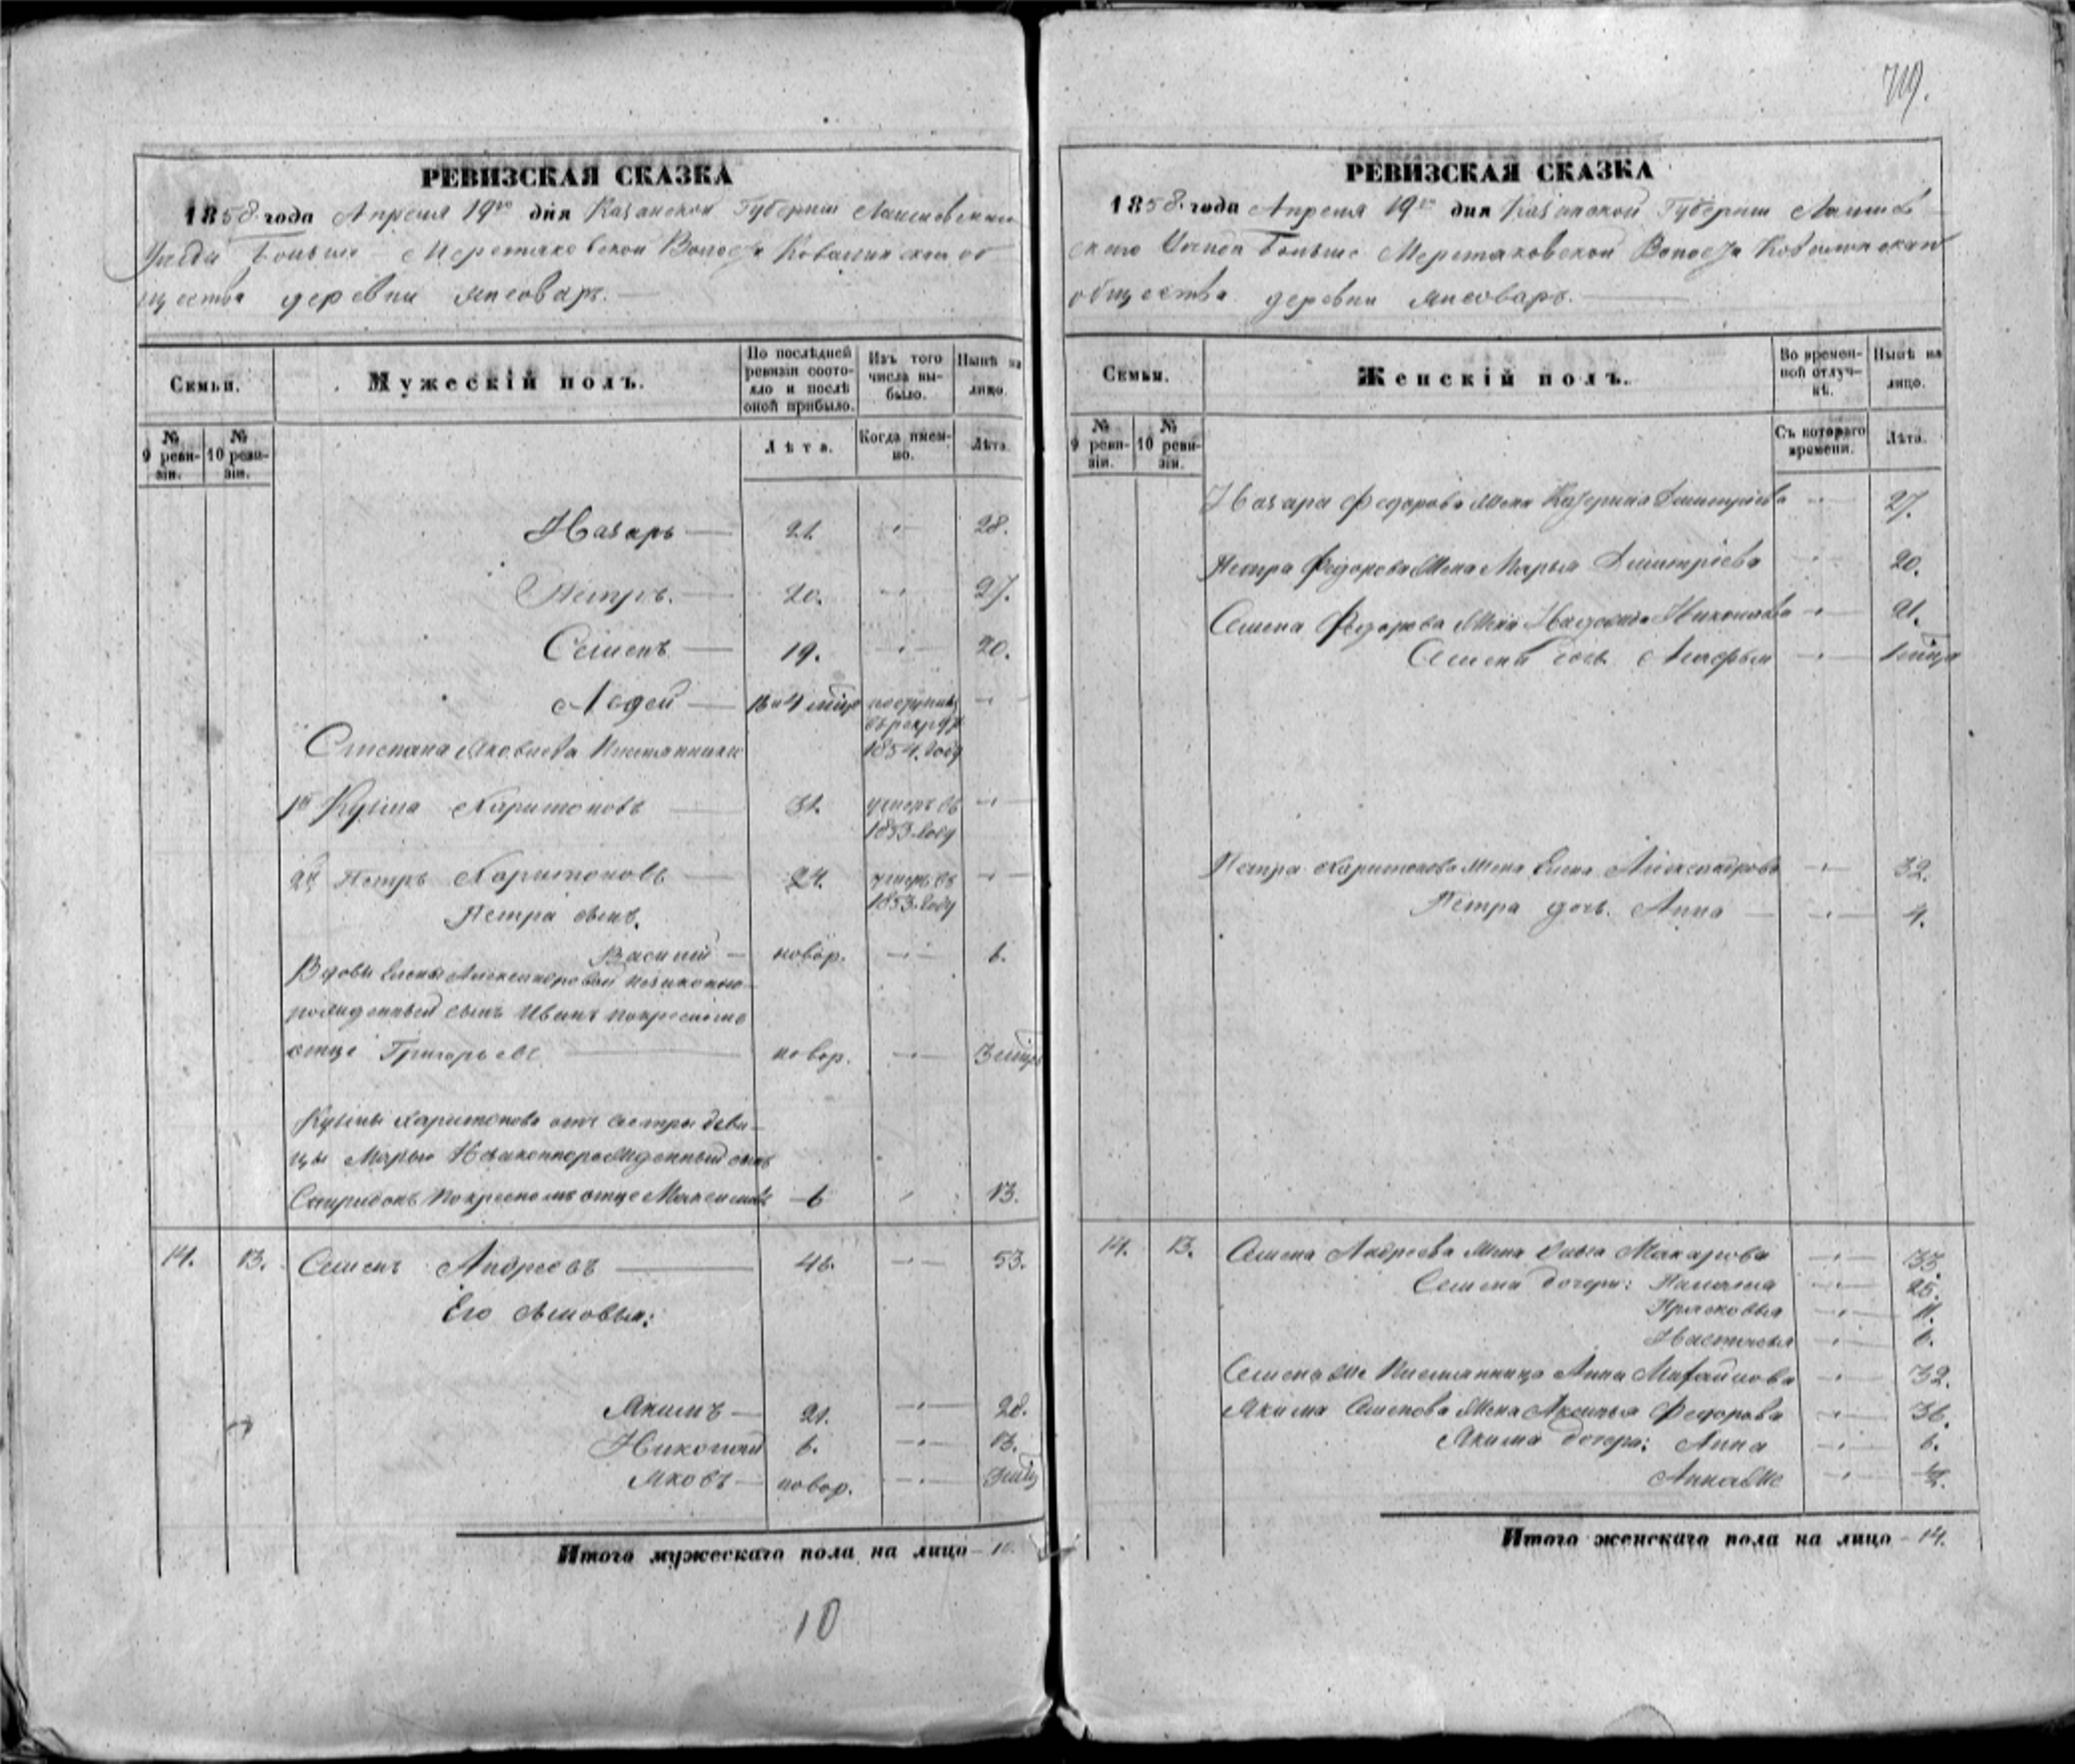 719.
РЕВИЗСКАЯ СКАЗКА
1858 года Апреля 19го дня Казанской Губернии Лаишевскаго
Уезда Больше-Меретяковской Волости Ковалинскаго об
щества деревни Янсоваръ.
Семьи.
Мужескій полъ.
По послѣдней ревизіи состояло и послѣ оной прибыло.
Изъ того числа выбыло.
Нынѣ на лицо.
№ 9 ревизіи.
№ 10 ревизіи.
Лѣта.
Когда именно.
Лѣта.
Назаръ 21. 28.
Петръ. 20. 27.
Семенъ 19. 20.
поступилъ
въ рекруты
1854. году
Степана Яковлева Племянники
1й Кузма Харитоновъ 31. умеръ въ
1853. году
2й Петръ Харитоновъ 24. умеръ въ
1853. году
Петра сынъ.
Василий новор. 6.
Вдовы Елены Александровой незаконно-
рожденный сынъ Иванъ по крестному
отце Григорьевъ новор. 3 мѣця
Кузмы Харитонова отъ сестры деви-
цы Марьи Незаконнорожденный сынъ
Спиридонъ по крестномъ отце Максимовъ 6 13.
14. 13. Семенъ Андреевъ 46. 53.
Его сыновья:
Якимъ 21. 28.
Николай 6. 13.
Яковъ новор.
Итого мужескаго пола на лицо 10.
10
РЕВИЗСКАЯ СКАЗКА
1858. года Апреля 19го дня Казанской Губернии Лаишев-
скаго Уезда Больше Меретяковской Волости Ковалинскаго
общества деревни Янсоваръ.
Семьи.
Женскій полъ.
Во временной отлучкѣ.
Нынѣ на лицо.
№ 9 ревизіи.
№ 10 ревизіи.
Съ котораго времени.
Лѣта.
Назара Федорова Жена Катерина Дмитриева 27.
Петра Федорова Жена Марья Дмитріева 20.
Семена Федорова Жена Надежда Николаева 21.
Семена дочь Агафья
Петра Харитонова Жена Елена Александрова 32.
Петра дочь. Анна 4.
14. 13. Семена Андреева Жена Ольга Макарова 33.
Семена дочери: Палагея 25.
Прасковья 11.
Настасья 6.
Семена же Племянница Анна Михайлова 32.
Якима Семенова Жена Аксинья Федорова 36.
Якима дочери: Анна 6.
Анна же
Итого женскаго пола на лицо 14.